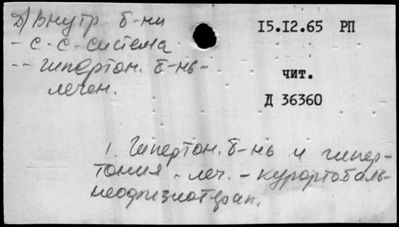 д) Внутр б-ни
- с-с-система
-- гипертон. б-нь-
лечен.
15.12.65 РП
чит.
Д 36360
1. Гипертон. б-нь и гипер-
тония - леч. - курортобаль-
неофизиотерап.